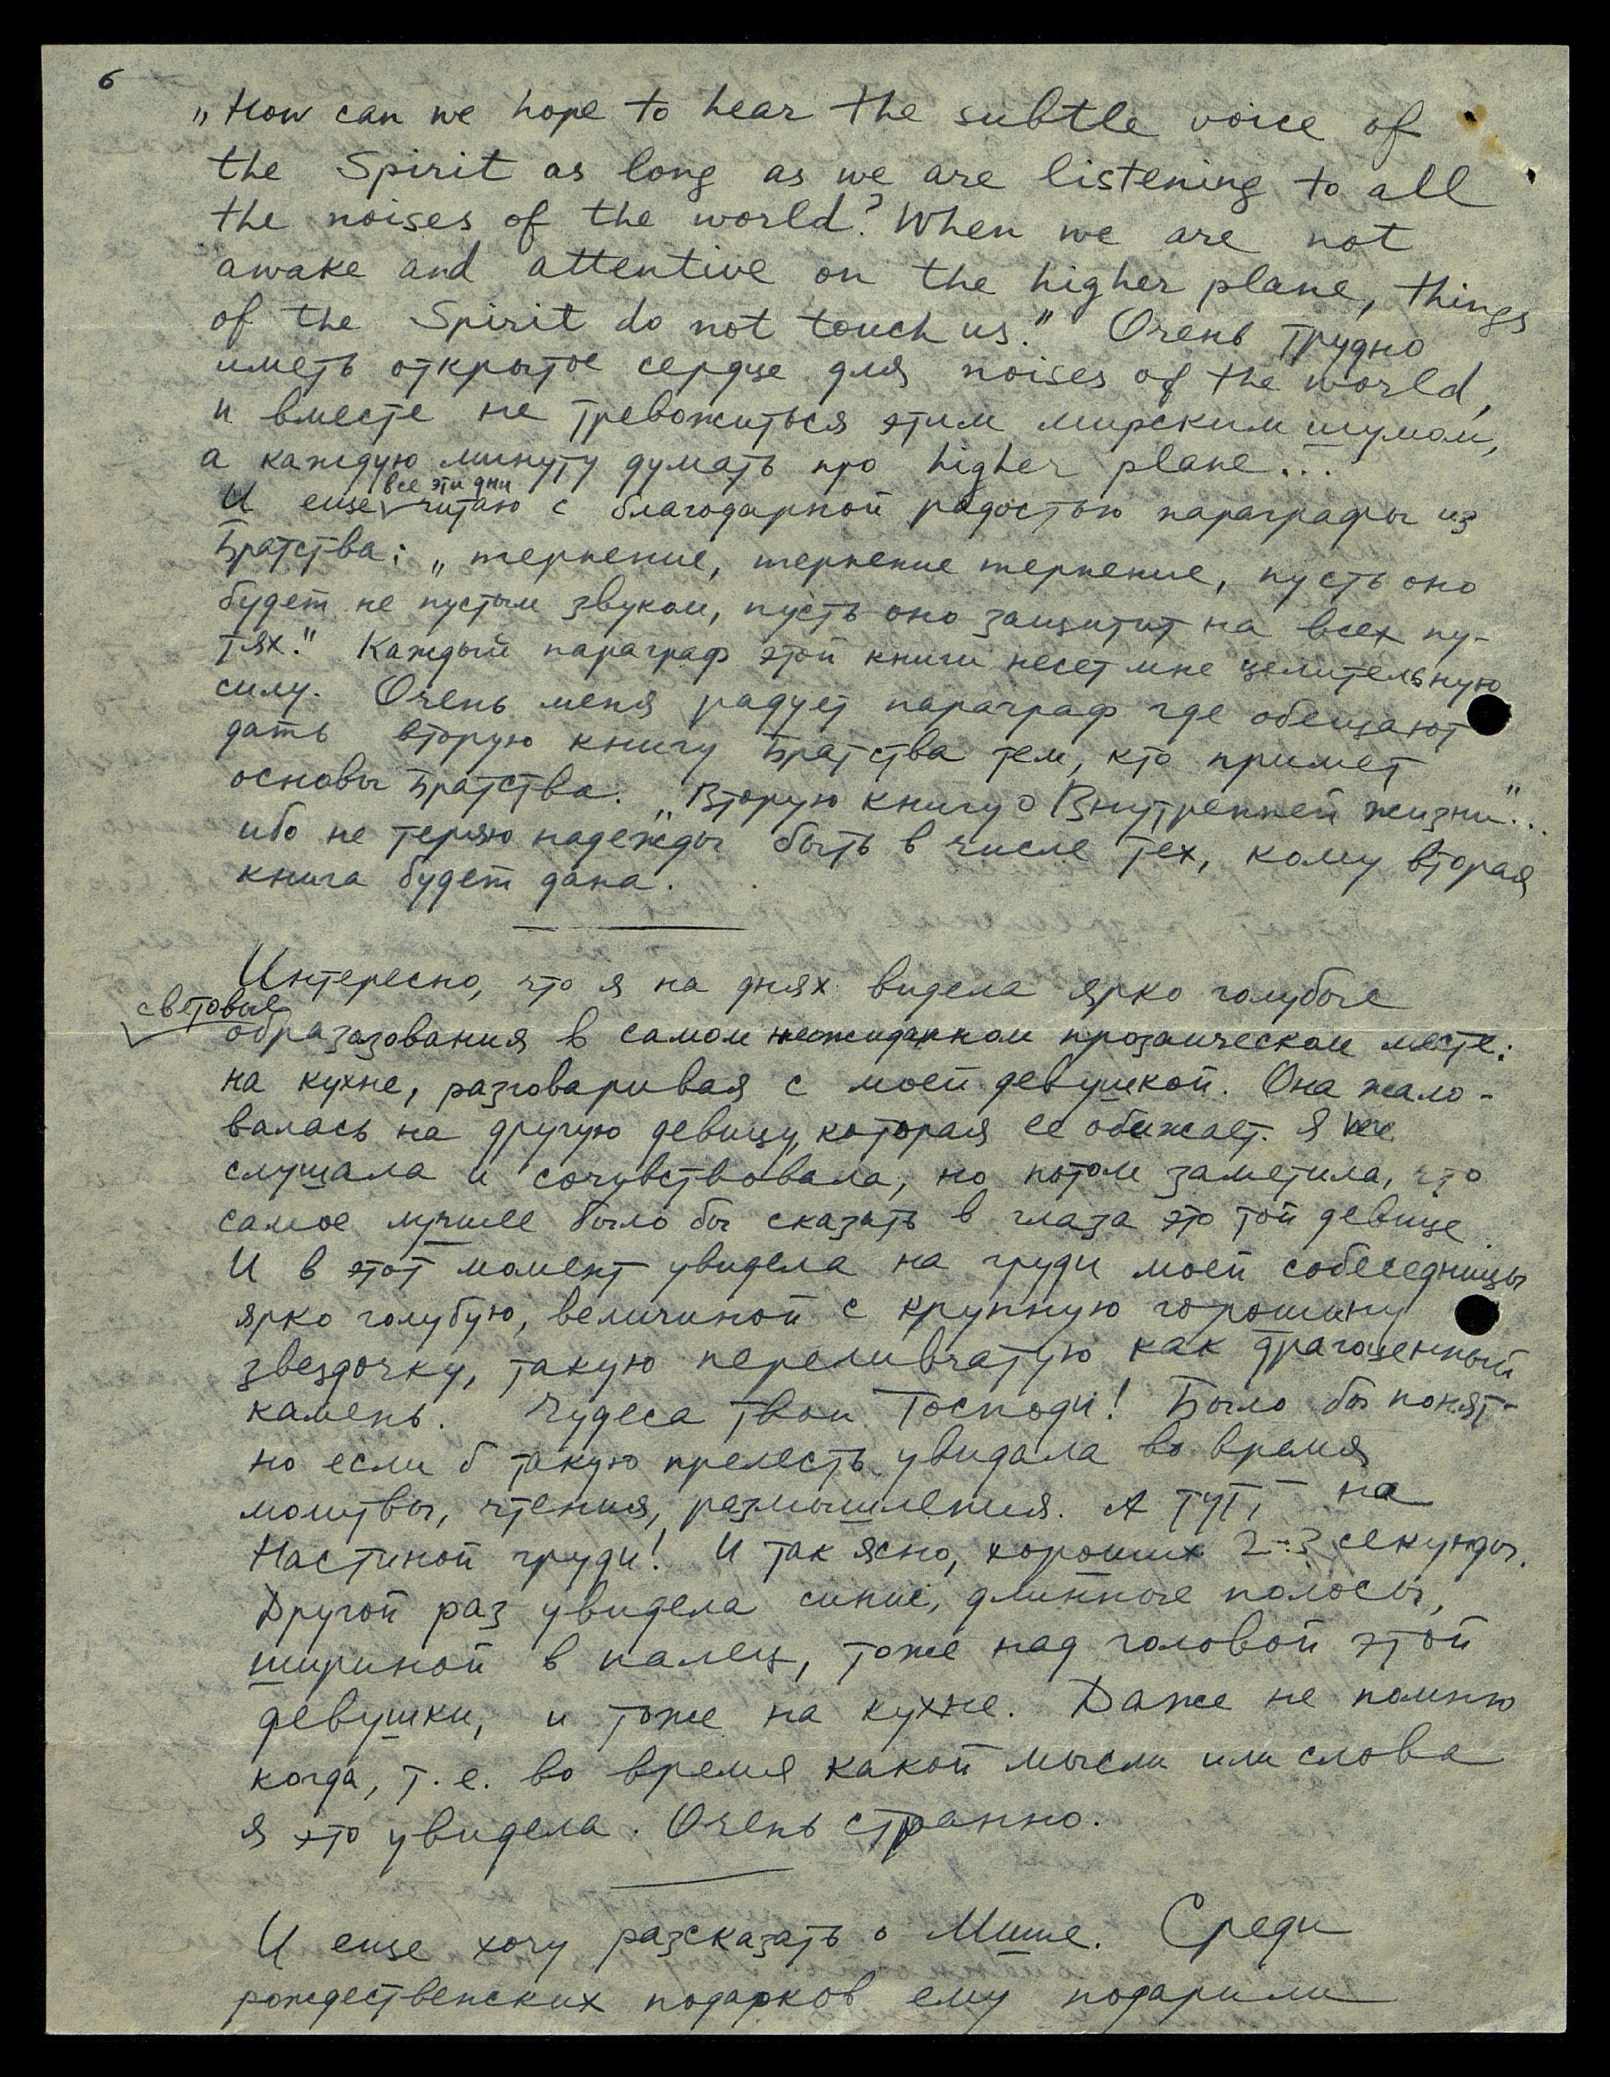 6
„How can we hope to hear the subtle voice of
the Spirit as long as we are listening to all
the noises of the world? When we are not
awake and attentive on the higher plane, things
of the Spirit do not touch us." Очень трудно
иметь открытое сердце для noises of the world,
и вместе не тревожиться этим мирским шумом,
а каждую минуту думать про higher plane...
все эти дни
И еще читаю с благодарной радостью параграфы из
Братства: „терпение, терпение терпение, пусть оно
будет не пустым звуком, пусть оно защитит на всех пу-
тях." Каждый параграф этой книги несет мне целительную
силу. Очень меня радует параграф где обещают
дать вторую книгу Братства тем, кто примет
основы Братства. „Вторую книгу о Внутренней жизни"...
ибо не теряю надежды быть в числе тех, кому вторая
книга будет дана.
Интересно, что я на днях видела ярко голубые
световые
образазования в самом неожиданном прозаическом месте:
на кухне, разговаривая с моей девушкой. Она жало-
валась на другую девицу, которая ее обижает. Я все
слушала и сочувствовала, но потом заметила, что
самое лучшее было бы сказать в глаза это той девице.
И в этот момент увидела на груди моей собеседницы
ярко голубую, величиной с крупную горошину
звездочку, такую переливчатую как драгоценный
камень. Чудеса твои Господи! Было бы понят-
но если б такую прелесть увидала во время
молитвы, чтения, размышления. А тут, на
Настиной груди! И так ясно, хороших 2-3 секунды.
Другой раз увидела синие, длинные полосы,
шириной в палец, тоже над головой этой
девушки, и тоже на кухне. Даже не помню
когда, т.е. во время какой мысли или слова
я это увидела. Очень странно.
И еще хочу разсказать о Мише. Среди
рождественских подарков ему подарили